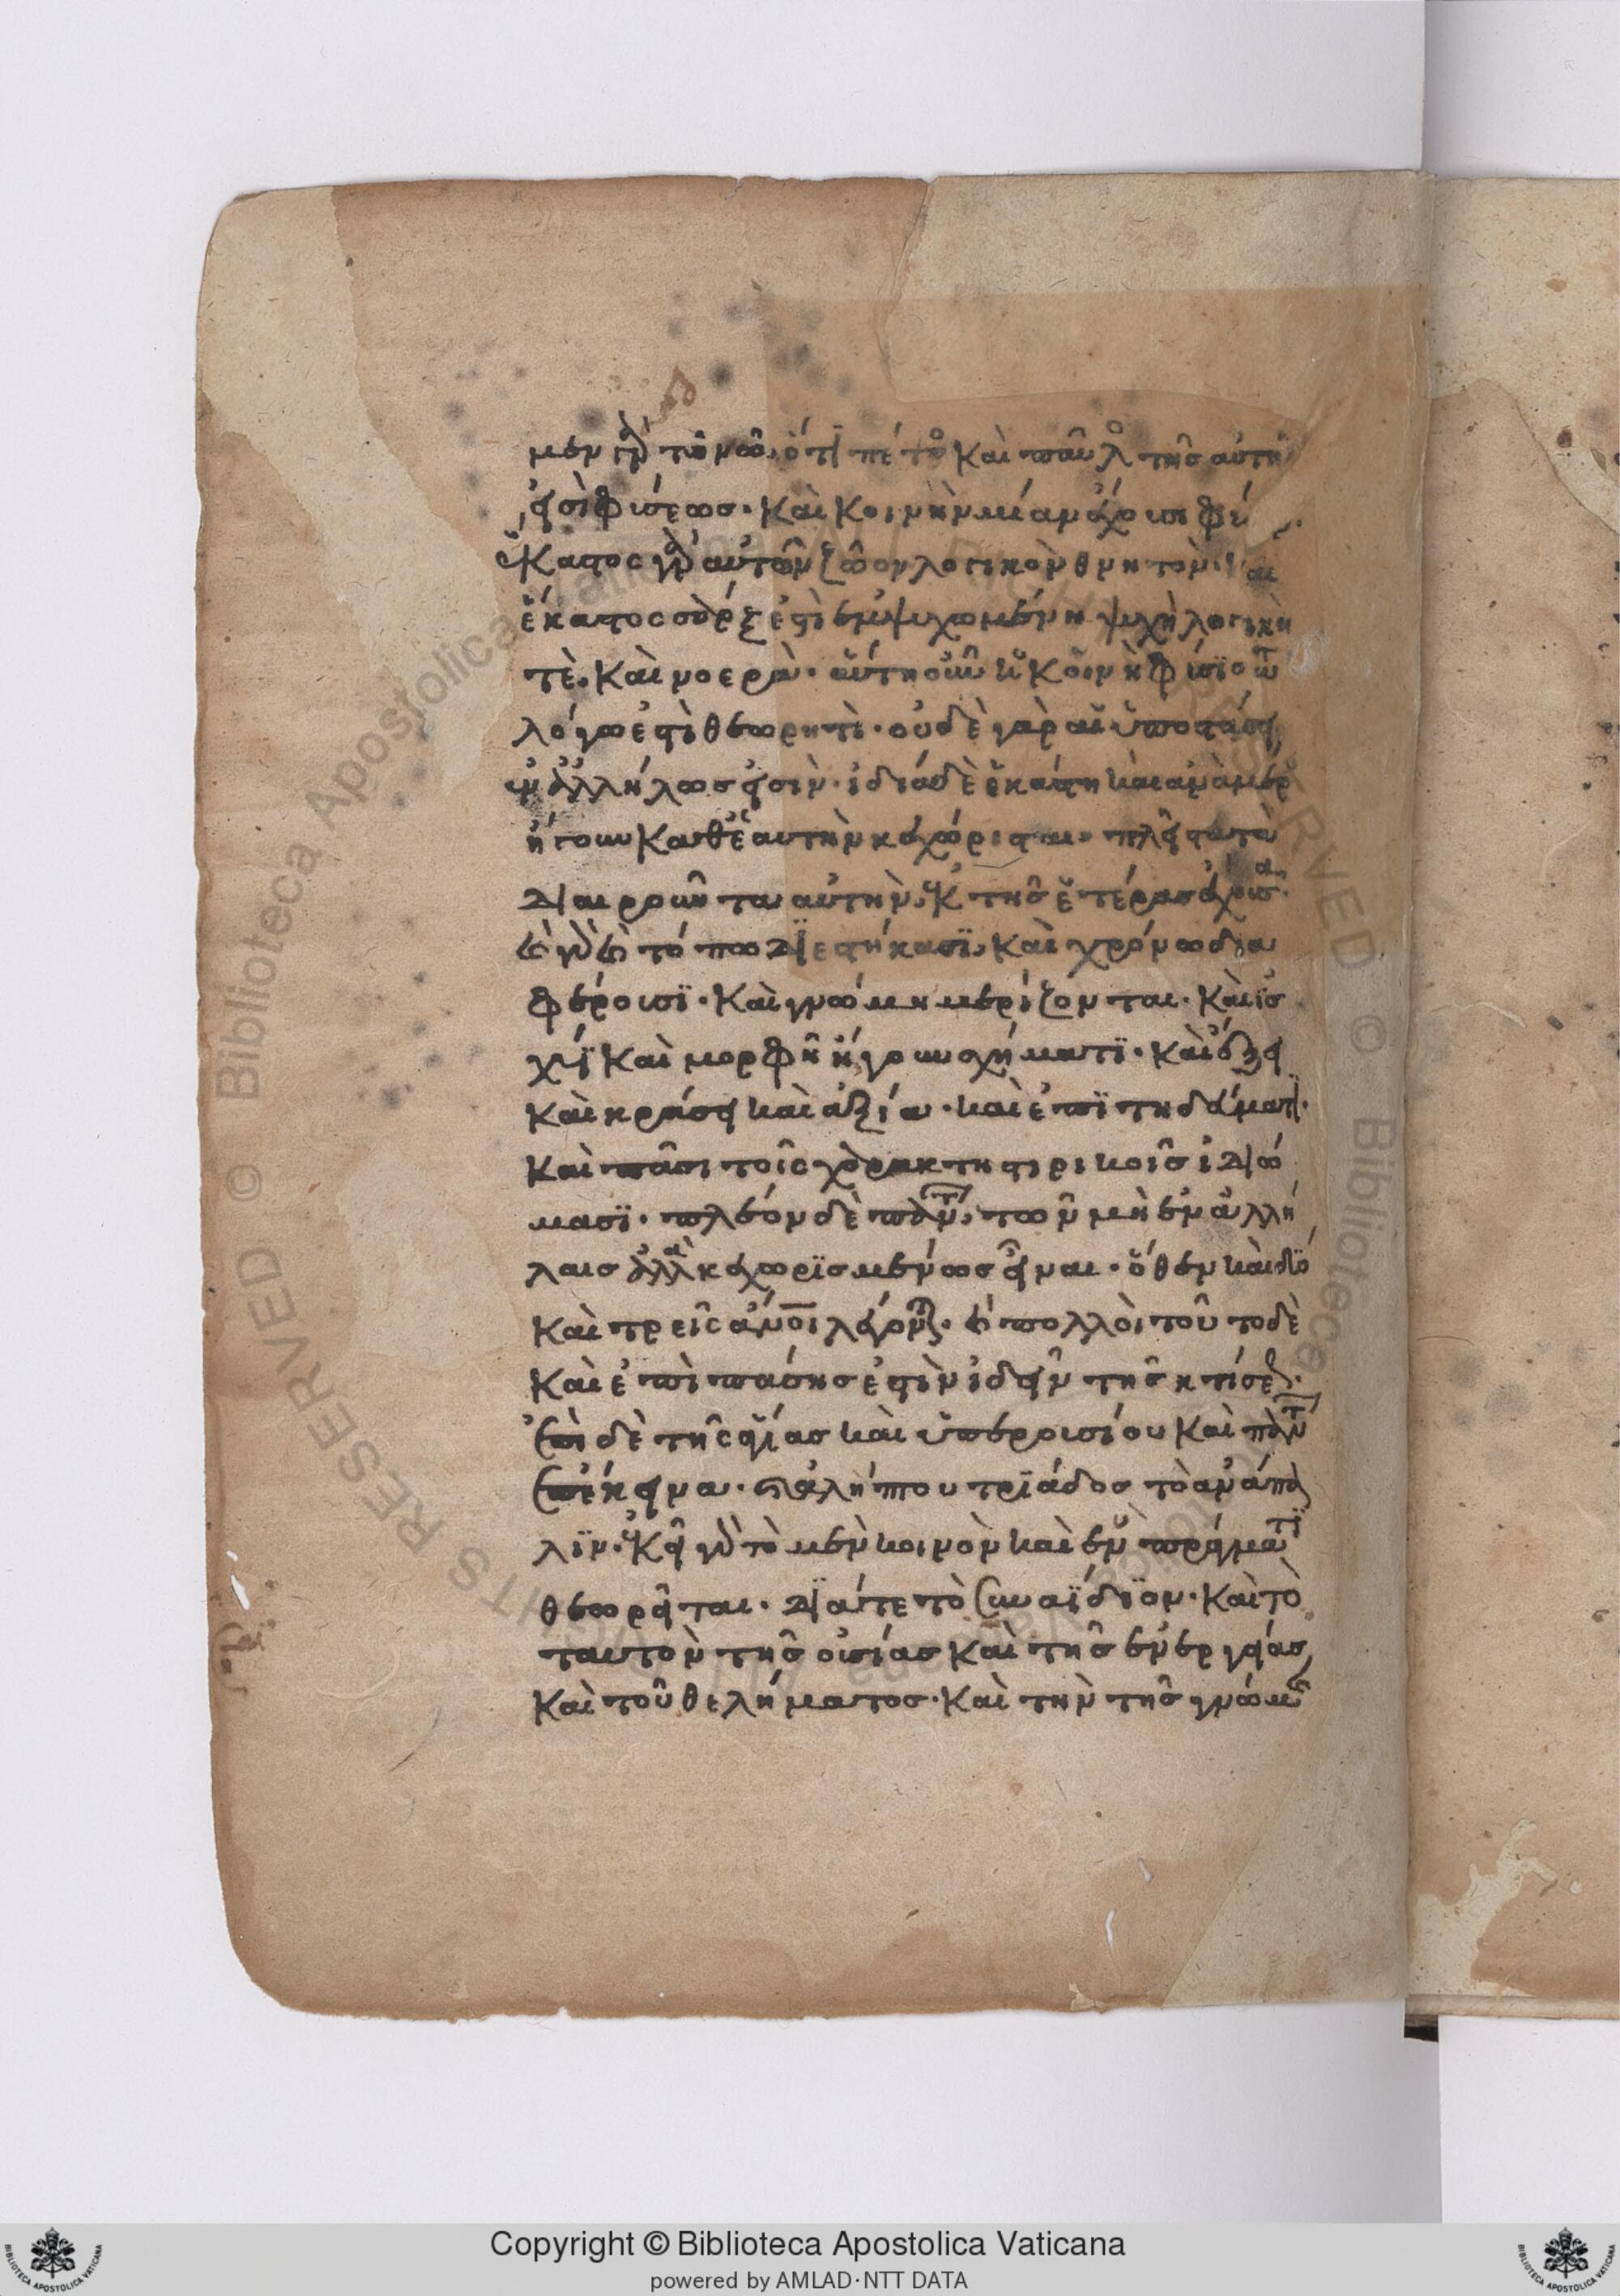 μεν γὰρ τῷ νῷ, ὅτι πέτρος καὶ παῦλος τῆς αὐτῆς
εἰσὶ φύσεως· καὶ κοινὴν μίαν ἔχουσι φύ
ἕκαστος γὰρ αὐτῶν ζῶον λογικὸν θνητόν· καὶ
ἕκαστος σὰρξ ἐστὶ ἐμψυχωμένη ψυχῇ λογικῇ
τὲ καὶ νοερᾷ· αὕτη οὖν ἡ κοινὴ φύσις τῷ
λόγῳ ἐστὶ θεωρητὴ· οὐδὲ γὰρ αἱ ὑποστάσεις
ἐν ἀλλήλαις εἰσὶν· ἰδίᾳ δὲ ἑκάστη καὶ ἀνὰ μέρος
ἤγουν καθ' ἑαυτὴν κεχώρισται· πλεῖστα τὰ
διαιροῦντα αὐτὴν ἐκ τῆς ἑτέρας ἔχουσα·
καὶ γὰρ καὶ τόπῳ διεστήκασι, καὶ χρόνῳ δια
φέρουσι· καὶ γνώμῃ μερίζονται· καὶ ἰσ
χύϊ καὶ μορφῇ ἤγουν σχήματι· καὶ ἕξει
καὶ κράσει καὶ ἀξίᾳ· καὶ ἐπιτηδεύματι·
καὶ πᾶσι τοῖς χαρακτηριστικοῖς ἰδιώ
μασι· πλέον δὲ πάντων, τῷ μὴ ἐν ἀλλή
λαις ἀλλὰ κεχωρισμένως εἶναι· ὅθεν καὶ δύο
καὶ τρεῖς ἄνοι λέγονται· καὶ πολλοὶ τοῦτο δὲ
καὶ ἐπὶ πάσης ἐστὶν ἰδεῖν τῆς κτίσεως·
ἐπὶ δὲ τῆς ἁγίας καὶ ὑπερουσίου καὶ πάντων
ἐπέκεινα· καὶ ἀλήπτου τριάδος τὸ ἀνάπα
λιν· ἐκεῖ γὰρ τὸ μὲν κοινὸν καὶ ἓν πράγματι
θεωρεῖται· διά τε τὸ συναΐδιον· καὶ τὸ
ταυτὸν τῆς οὐσίας καὶ τῆς ἐνεργείας
καὶ τοῦ θελήματος· καὶ τὴν τῆς γνώμης
Copyright © Biblioteca Apostolica Vaticana
powered by AMLAD·NTT DATA